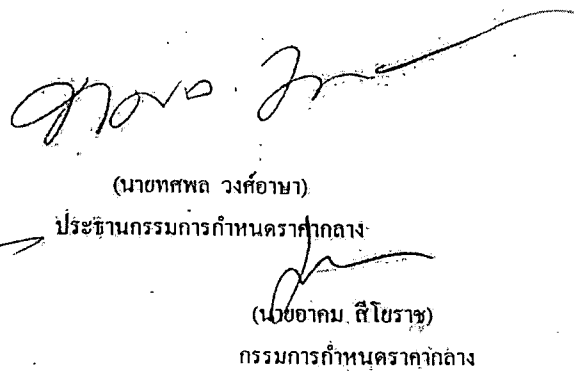 (นายทศพล วงศ์อาษา)
ประธานกรรมการกำหนดราคากลาง
(นายอาคม สีโยราช)
กรรมการกำหนดราคากลาง